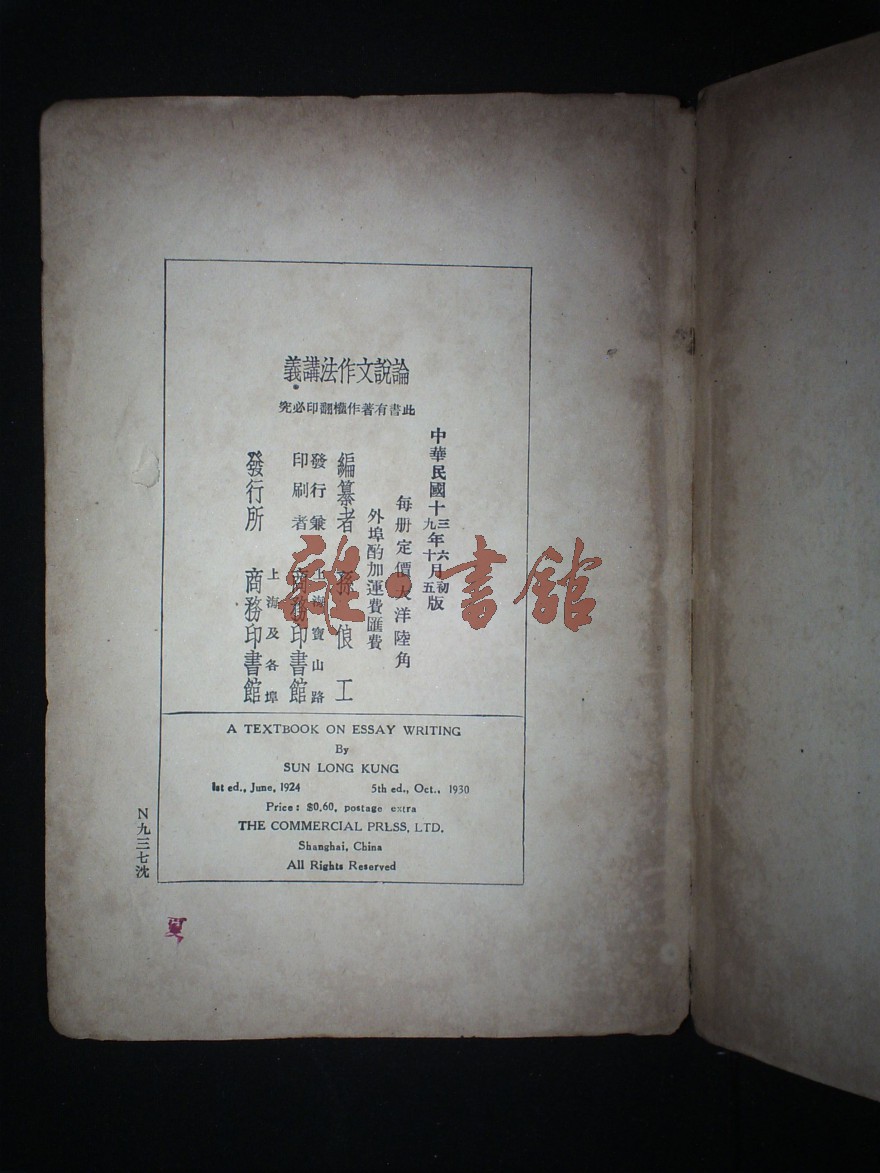 論說文作法講義
此書有著作權翻印必究
中華民國十三年六月初版
九年十月五
每册定價大洋陸角
外埠酌加運費匯費
編纂者 孫俍工
發行兼
印刷者
上海寶山路
商務印書館
發行所
上海及各埠
商務印書館
A TEXTBOOK ON ESSAY WRITING
By
SUN LONG KUNG
1st ed., June, 1924 5th ed., Oct., 1930
Price: $0.60, postage extra
THE COMMERCIAL PRLSS, LTD.
Shanghai, China
All Rights Reserved
N九三七沈
夏
雜·書館